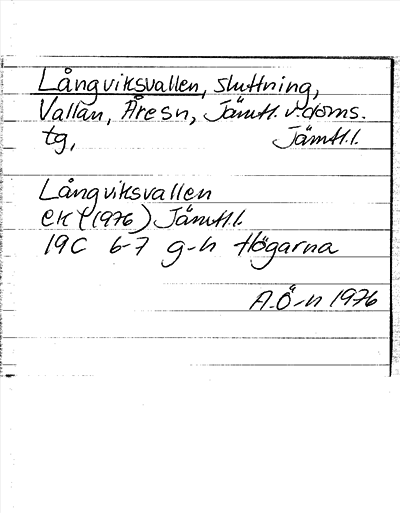 Långviksvallen, sluttning,
Vallan, Åresn, Jämtl. v. doms.
tg, Jämtl.l.
Långviksvallen
ek (1976) Jämtl.l.
19C 6-7 g-h Högarna
A.Ö-n 1976